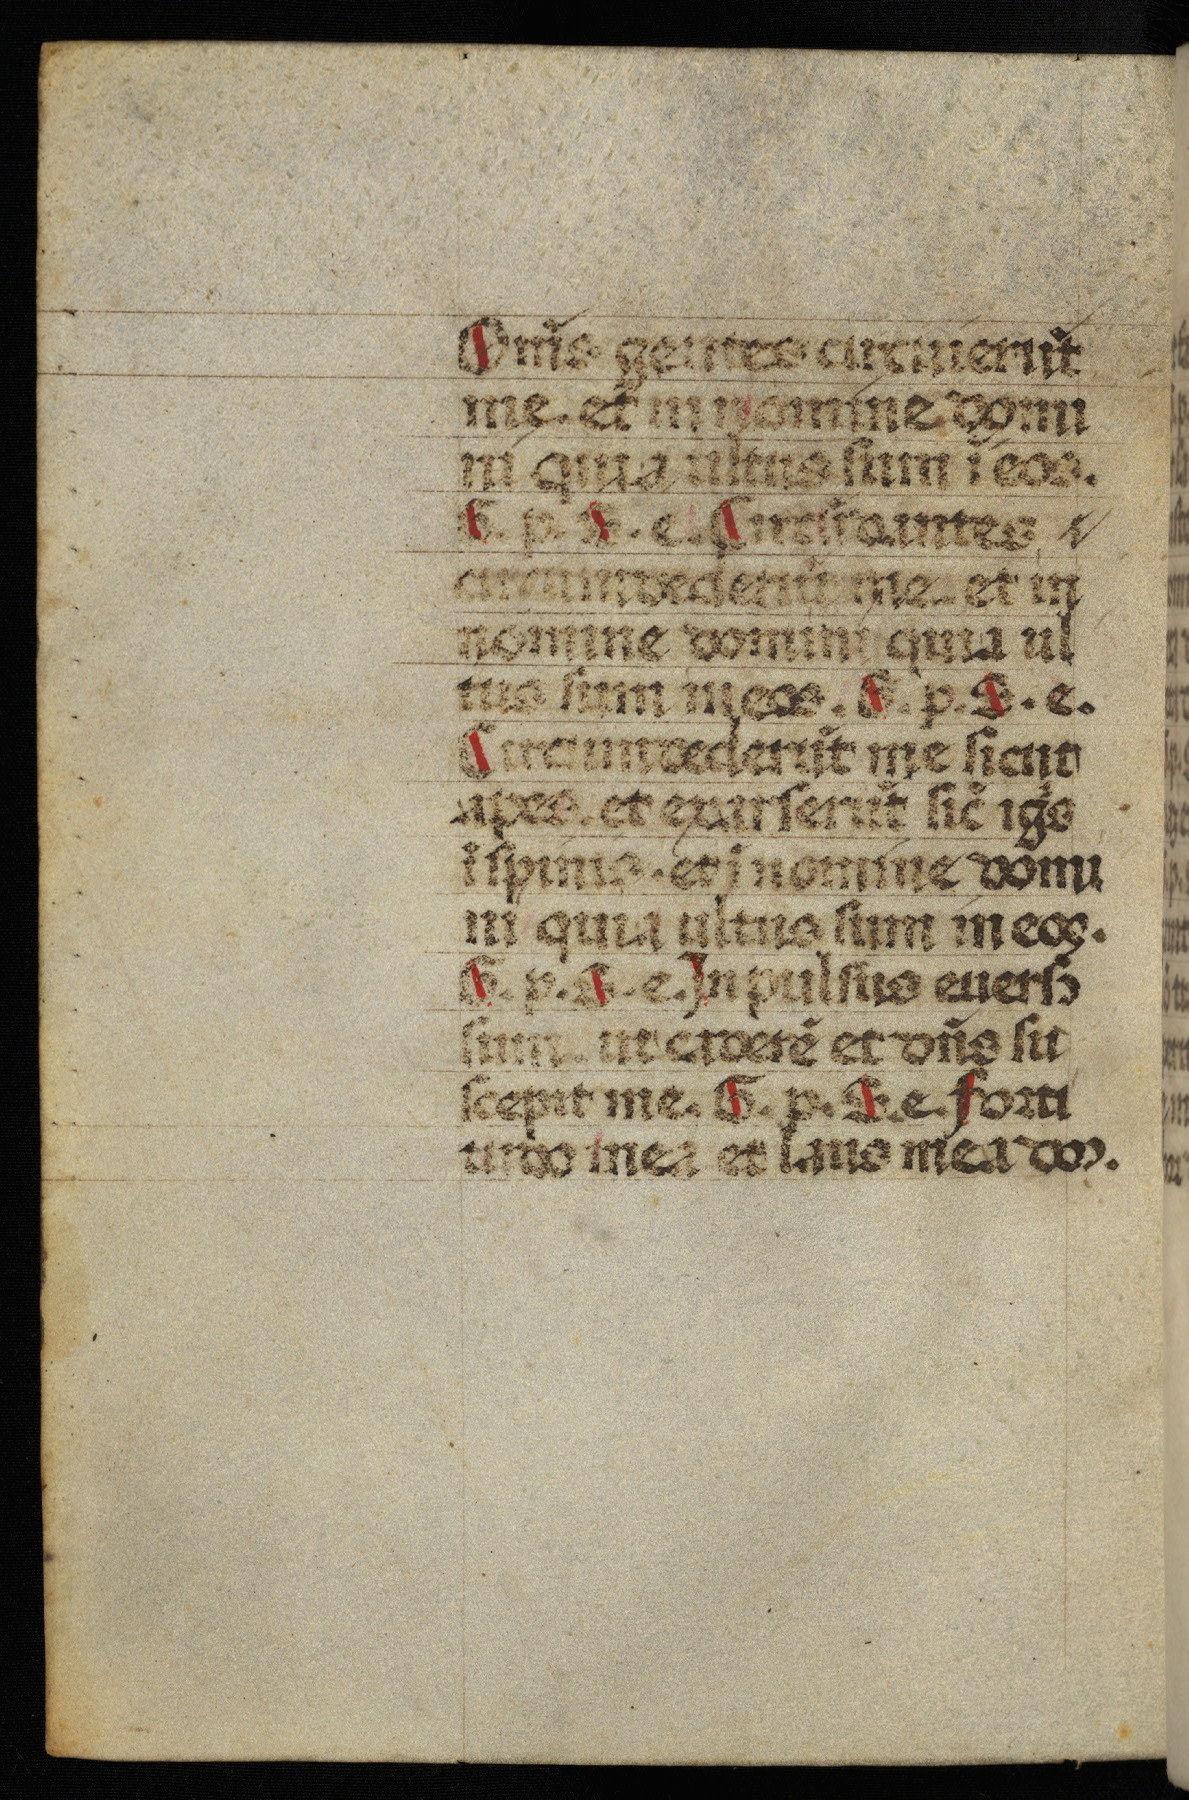 Om̅s gentes circuierūt
me. et in nomine domi
ni quia ultus sum ī eos.
G. p. S. e. Circūdantes
circumdederūt me. et in
nomine domini quia ul
tus sum in eos. G. p. S. e.
Circumdederūt me sicut
apes. et exarserūt sic̄ igīs
ī spinis. et ī nomine domi
ni quia ultus sum in eos.
G. p. S. e. Inpulsus eversꝰ
sum. ut caderē et dn̄s su
scepit me. G. p. S. e. forti
tudo mea et laus mea